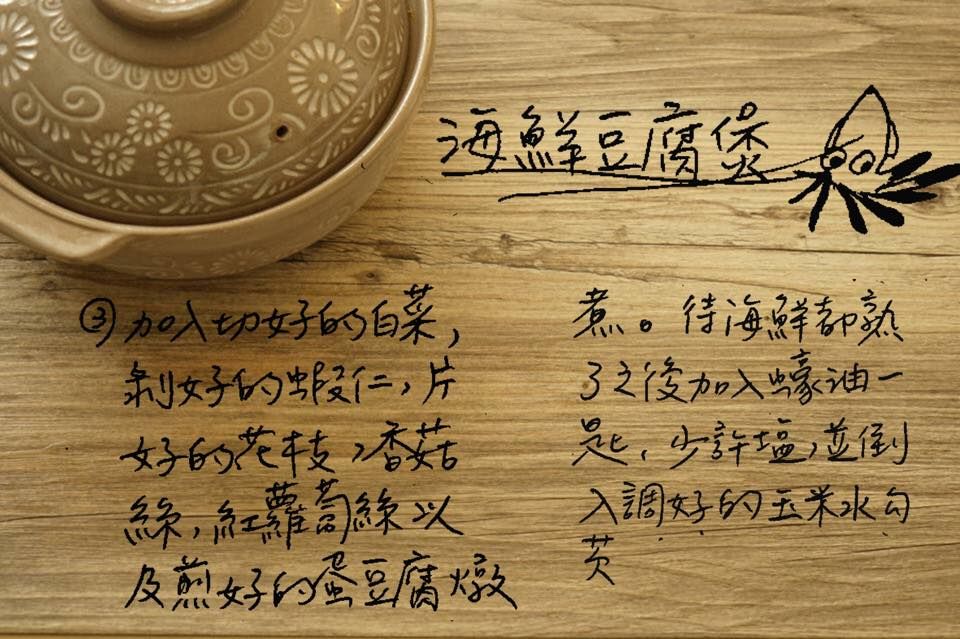 海鮮豆腐煲
③加入切好的白菜,
剝好的蝦仁,片
好的花枝,香菇
絲,紅蘿蔔絲以
及煎好的蛋豆腐燉
煮。待海鮮都熟
了之後加入蠔油一
匙,少許塩,並倒
入調好的玉米水勾
芡